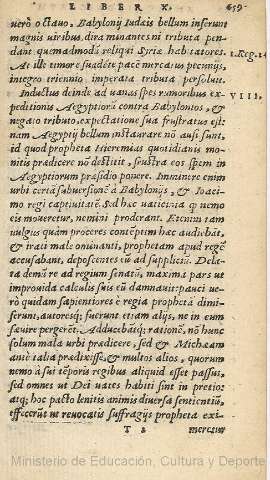 LIBER X. 659
uerò octauo, Babylonij Iudæis bellum inferunt
magnis uiribus, dira minantes ni tributa pen-
dant quemadmodũ reliqui Syriæ habitatores.
At ille timore suadẽte pacẽ mercatus pecunijs,
integro triennio imperata tributa persoluit.
Inductus deinde ad uanas spes rumoribus ex-
VIII.
peditionis Aegyptiorũ contra Babylonios, &
negato tributo, expectatione sua frustratus est:
nam Aegyptij bellum instaurare nõ ausi sunt,
id quod propheta Hieremias quotidianis mo-
nitis prædicere nõ destitit, frustra eos spem in
Aegyptiorum præsidio ponere. Imminere enim
urbi certã subuersionẽ à Babylonijs, & Ioaci-
mo regi captiuitatẽ. Sed hæc uaticinia q̃ nemo
eis moueretur, nemini proderant. Etenim tam
uulgus quàm proceres conceptim hæc audiebãt,
& irati male ominanti, prophetam apud regẽ
accusabant, deposcentes eũ ad suppliciũ. Dela-
ta demũ re ad regium senatũ, maxima pars ut
improuida calculis suis eũ damnauit: pauci ue-
rò quidam sapientiores è regia prophetã dimi-
serunt, autoresq́; fuerunt etiam alijs, ne in eum
sæuire pergerẽt. Adducebãtq́; rationẽ, nõ hunc
solum mala urbi prædicere, sed & Michæam
antè talia prædixisse, & multos alios, quorum
nemo à sui tẽporis regibus aliquid esset passus,
sed omnes ut Dei uates habiti sint in pretio:
atq́; hoc pacto lenitis animis diuersa sentientiũ,
effecerũt ut reuocatis suffragijs propheta exi-
T 2 meretur
Ministerio de Educación, Cultura y Deporte